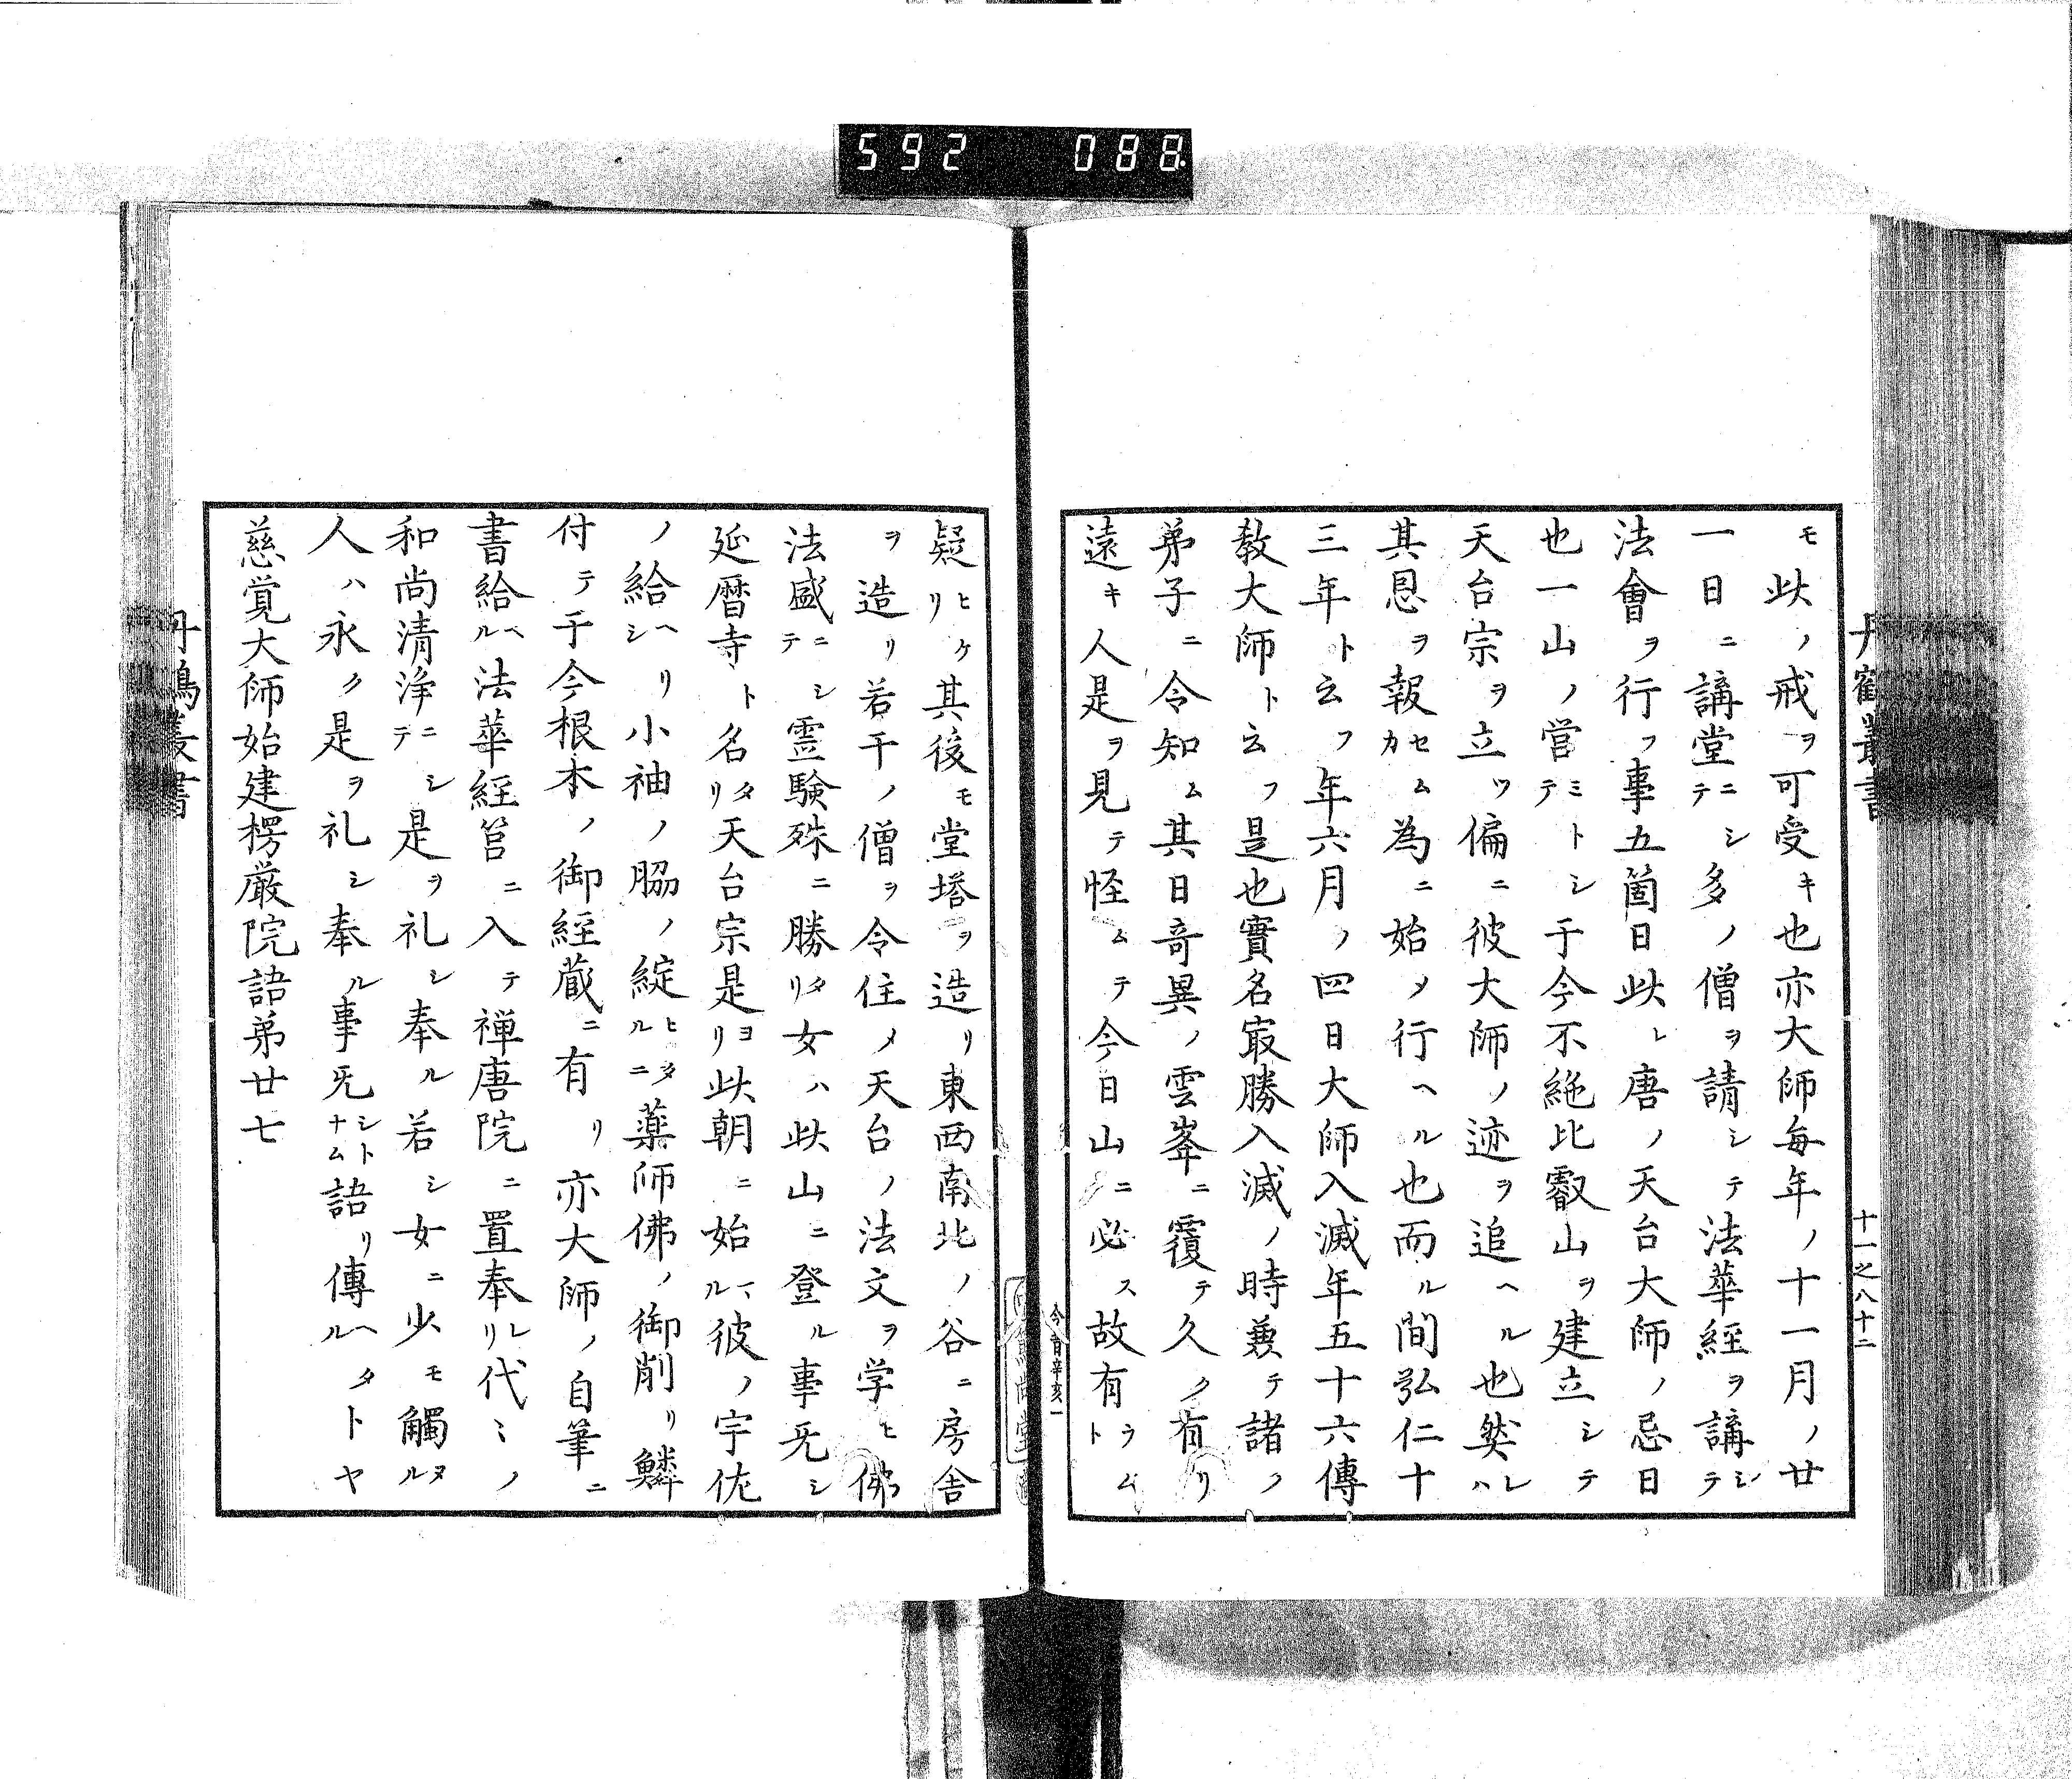 592 088
丹鶴叢書
十一之八十二
モ此ノ戒ヲ可受キ也亦大師毎年ノ十一月ノ廿
一日ニ講堂ニシテ多ノ僧ヲ請シテ法華経ヲ講シテ
法會ヲ行フ事五箇日此レ唐ノ天台大師ノ忌日
也一山ノ営ミトシテ于今不絶比叡山ヲ建立シテ
天台宗ヲ立ツ偏ニ彼大師ノ迹ヲ追ヘル也然レハ
其恩ヲ報セムカ為ニ始メ行ヘル也而ル間弘仁十
三年ト云フ年六月ノ四日大師入滅年五十六傳
教大師ト云フ是也實名冣勝入滅ノ時兼テ諸ノ
弟子ニ令知ム其日奇異ノ雲峯ニ覆テ久ク有リ
遠キ人是ヲ見テ怪ムテ今日山ニ必ス故有ラムト
疑ヒケリ其後モ堂塔ヲ造リ東西南北ノ谷ニ房舎
ヲ造リ若干ノ僧ヲ令住メ天台ノ法文ヲ学ヒ佛
法盛ニシテ霊験殊ニ勝タリ女ハ此山ニ登ル事旡シ
延暦寺ト名タリ天台宗是ヨリ此朝ニ始マル彼ノ宇佐
ノ給ヘリシ小袖ノ脇ノ綻ヒタルニ薬師佛ノ御削リ鱗
付テ于今根本ノ御經蔵ニ有リ亦大師ノ自筆ニ
書給ヘル法華経筥ニ入テ禅唐院ニ置奉レリ代ミノ
和尚清浄ニシテ是ヲ礼シ奉ル若シ女ニ少モ觸ヌル
人ハ永ク是ヲ礼シ奉ル事旡シトナム語リ傳ヘタルトヤ
慈覚大師始建楞厳院語第廿七